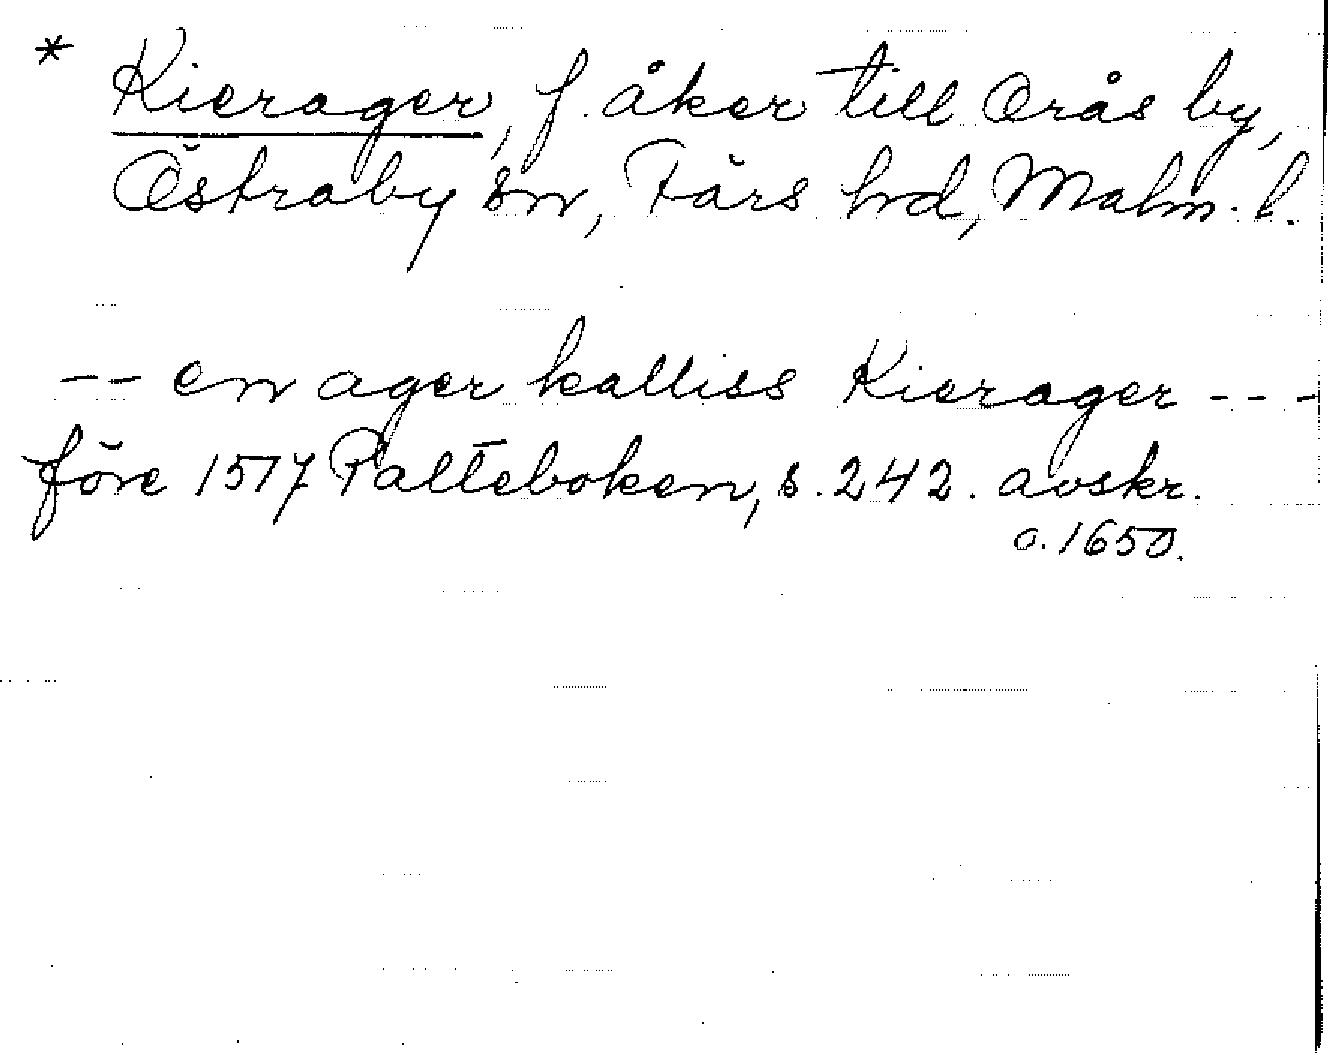 * Kierager, f. åker till Orås by,
Östraby sn, Färs hd, Malm. l.
-- en ager kalliss Kierager ---
före 1517 Palteboken, s. 242. avskr.
o. 1650.